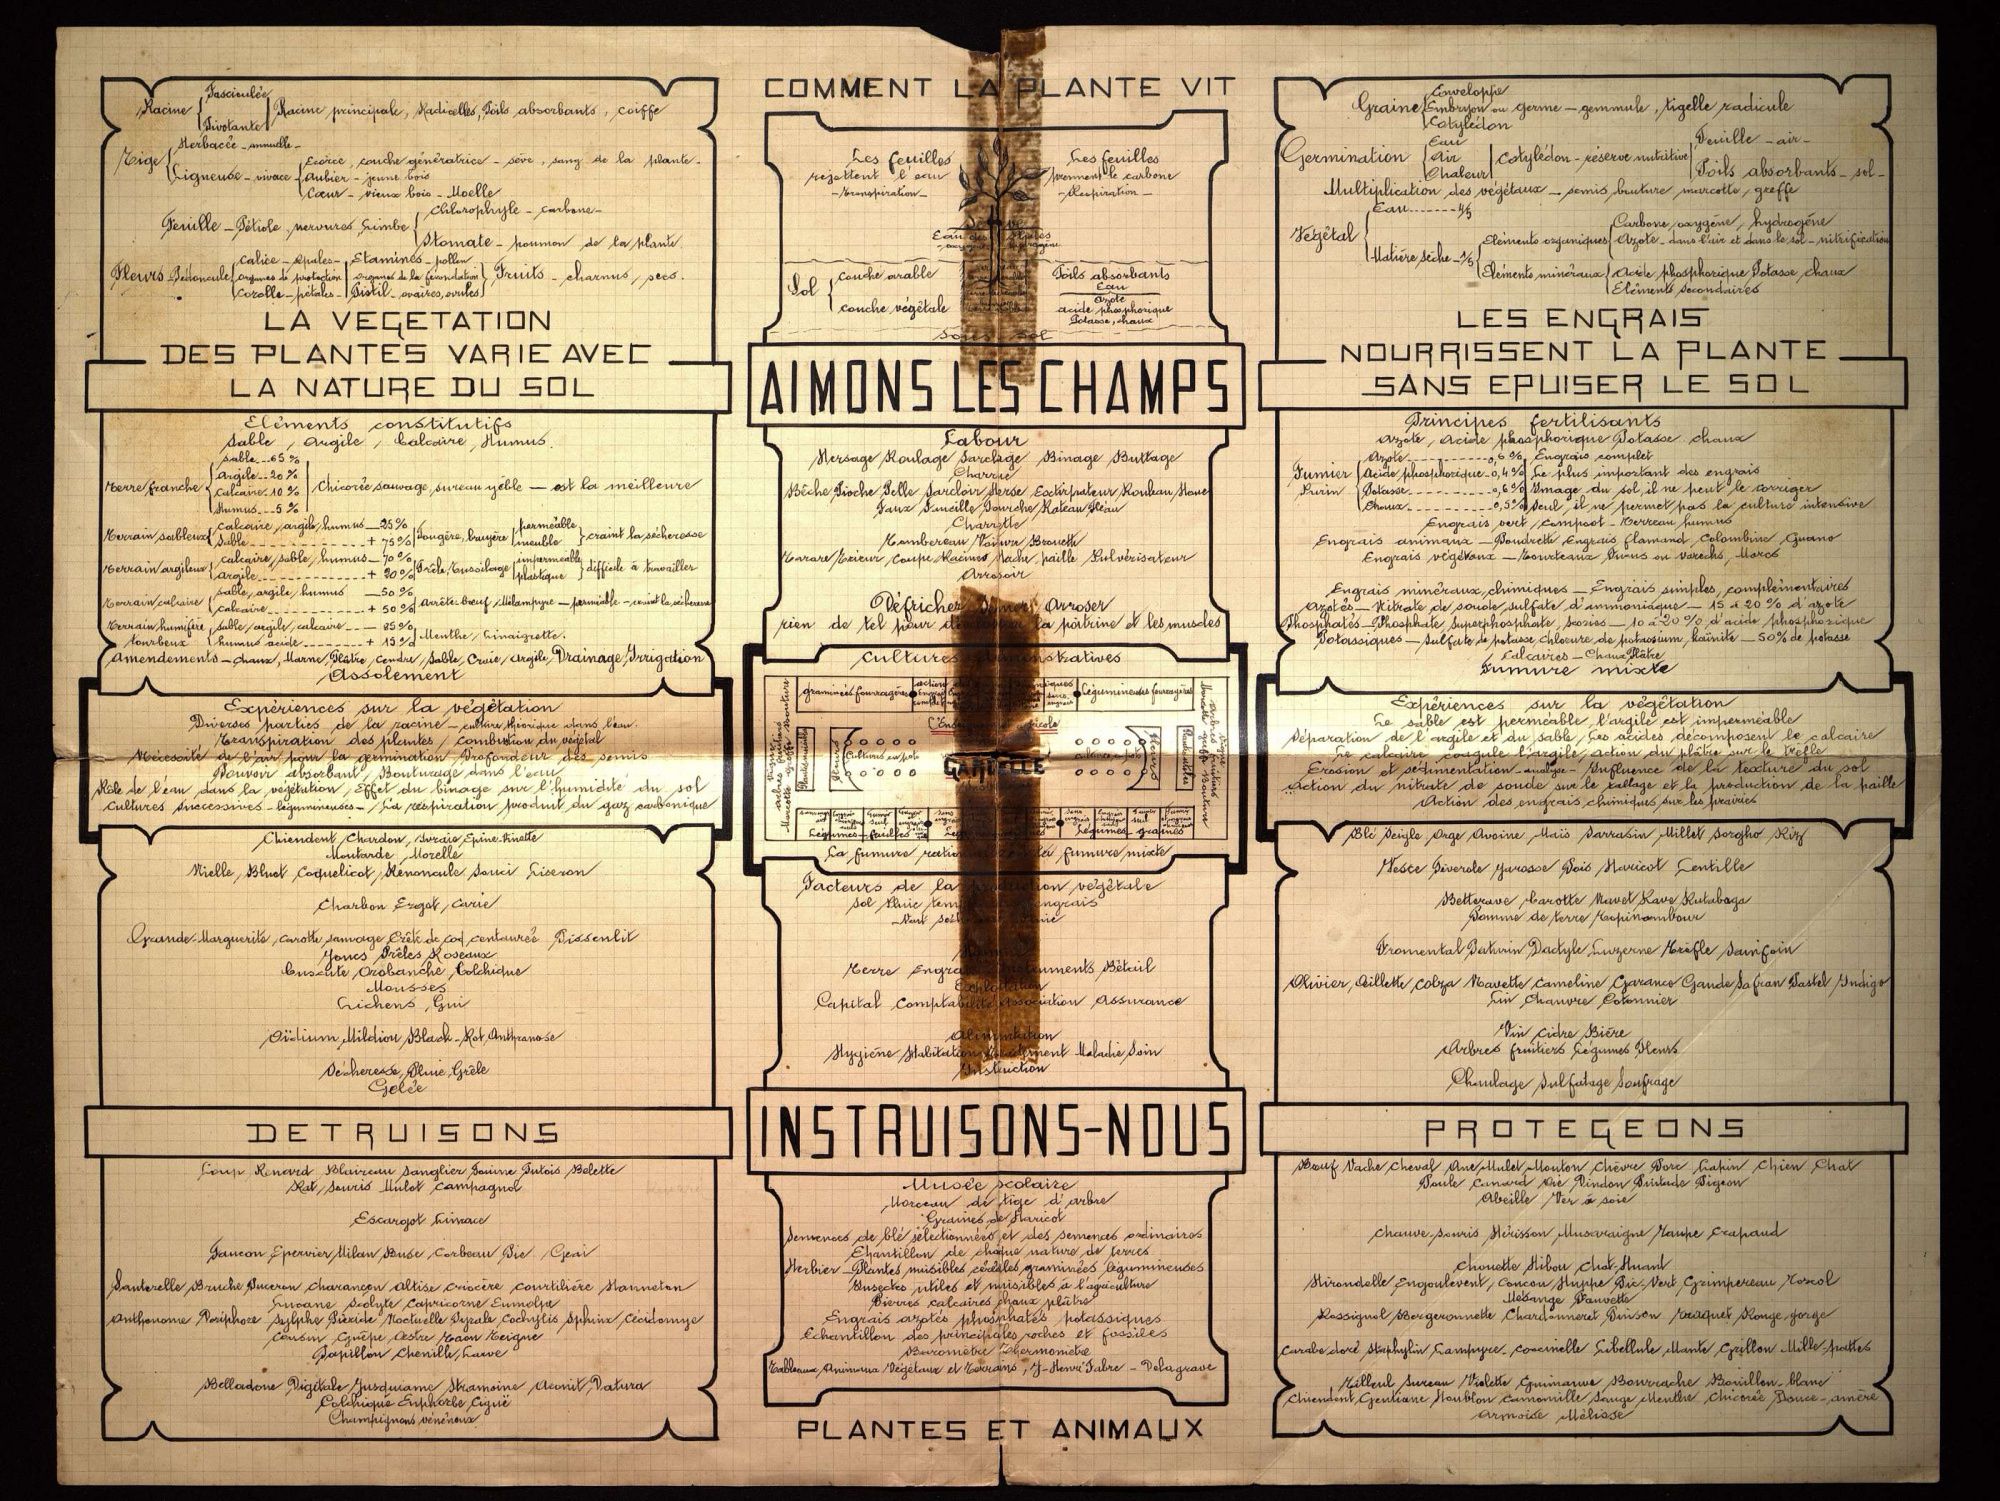 COMMENT LA PLANTE VIT
Racine
Fasciculée
Pivotante
Racine principale, Radicelles, Poils absorbants, coiffe
Tige
Herbacée - annuelle -
Ligneuse - vivace
Ecorce, couche génératrice - sève, sang de la plante -
Aubier - jeune bois
Cœur - vieux bois - Moelle
Feuille - Pétiole, nervures, Limbe
Chlorophyle - carbone -
Stomate - poumon de la plante
Fleurs - Pédoncule
calice - sépales -
organes de protection
corolle - pétales -
Etamines - pollen
organes de la fécondation
Pistil - ovaires, ovules
Fruits - charnus, secs.
LA VEGETATION
DES PLANTES VARIE AVEC
LA NATURE DU SOL
Eléments constitutifs
Sable, Argile, Calcaire, Humus.
Terre franche
Sable -- 65 %
Argile -- 20 %
Calcaire 10 %
Humus --- 5 %
Chicorée sauvage, sureau yèble - est la meilleure
Terrain sableux
calcaire, argile, humus - 25 %
Sable + 75 %
Fougère, bruyère
perméable
meuble
craint la sécheresse
Terrain argileux
calcaire, sable, humus - 70 %
argile + 20 %
Prêle, Tussilage
imperméable
plastique
difficile à travailler
Terrain calcaire
sable, argile, humus - 50 %
calcaire + 50 %
Arrête-bœuf, Mélampyre - perméable - craint la sécheresse
Terrain humifère
tourbeux
sable, argile, calcaire - 85 %
humus acide + 15 %
Menthe, Linaigrette.
Amendements - chaux, Marne, Plâtre, Cendre, Sable, Craie, Argile, Drainage, Irrigation
Assolement
Expériences sur la végétation
Diverses parties de la racine - culture théorique dans l'eau.
Transpiration des plantes, combustion du végétal
Nécessité de l'air pour la germination, Profondeur des semis
Pouvoir absorbant, Bouturage dans l'eau
Rôle de l'eau dans la végétation, Effet du binage sur l'humidité du sol
Cultures successives - légumineuses - La respiration produit du gaz carbonique
Chiendent, Chardon, Ivraie, Epine-Vinette
Moutarde Morelle
Nielle, Bluet Coquelicot, Renoncule Souci Liseron
Charbon Ergot, Carie
Grande-Marguerite, Carotte sauvage, Crête de coq centaurée Pissenlit
Joncs Prêles Roseaux
Cuscute Orobanche, Colchique
Mousses
Lichens, Gui
Oïdium, Mildiou Black-Rot, Anthracnose
Sécheresse, Pluie, Grêle
Gelée
DETRUISONS
Loup Renard Blaireau Sanglier Fouine Putois Belette
Rat, Souris Mulot Campagnol
Escargot Limace
Faucon Epervier Milan Buse Corbeau Pie Geai
Sauterelle Bruche Puceron Charançon Altise Criocère Courtilière Hanneton
Lucane Scolyte Capricorne Eumolpe
Anthonome Doriphore Sylphe Piéride Noctuelle Pyrale Cochylis Sphinx Cécidomye
Cousin Guêpe Oestre Taon Teigne
Papillon Chenille, Larve
Belladone Digitale Jusquiame Stramoine Aconit Datura
Colchique Euphorbe Ciguë
Champignons vénéneux
Les feuilles
rejettent l'eau
- transpiration -
Les feuilles
prennent le carbone
- Respiration -
Sol
couche arable
couche végétale
Poils absorbants
Eau
Azote
acide phosphorique
Potasse, chaux
Sous sol
AIMONS LES CHAMPS
Labour
Hersage Roulage Sarclage Binage Buttage
Charrue
Bêche Pioche Pelle Sarcloir Herse Extirpateur Rouleau Houe
Faux Faucille Fourche Rateau Fléau
Charrette
Tombereau Voiture Brouette
Tarare Trieur Coupe-Racines Hache paille Pulvérisateur
Arrosoir
Défricher Arroser
rien de tel pour développer la poitrine et les muscles
Cultures
graminées fourragères
Légumineuses fourragères
Cultures en pots
fleurs
Légumes - feuilles
Légumes - graines
La fumure mixte
Facteurs de la production végétale
Terre Engrais Instruments Bétail
Exploitation
Capital Comptabilité Association Assurance
Alimentation
Hygiène Habitation Maladie Soin
Instruction
INSTRUISONS-NOUS
Musée scolaire
Morceau de tige d'arbre
Graines de Haricot
Semences de blé sélectionnées et des semences ordinaires
Echantillon de chaque nature de terres
Herbier - Plantes nuisibles céréales, graminées, légumineuses
Insectes utiles et nuisibles à l'agriculture
Pierres calcaires chaux plâtre
Engrais azotés phosphatés potassiques
Echantillon des principales roches et fossiles
Baromètre Thermomètre
Tableaux Animaux Végétaux et Terrains, J-Henri Fabre - Delagrave
PLANTES ET ANIMAUX
Graine
Enveloppe
Embryon ou germe - gemmule, tigelle radicule
Cotylédon
Germination
Eau
Air
Chaleur
Cotylédon - réserve nutritive
Feuille - air -
Poils absorbants - sol -
Multiplication des végétaux - semis, bouture marcotte, greffe
Végétal
Eau
Matière sèche
Eléments organiques
Carbone, oxygène, hydrogène
Azote - dans l'air et dans le sol - nitrification
Eléments minéraux
Acide phosphorique Potasse chaux
Eléments secondaires
LES ENGRAIS
NOURRISSENT LA PLANTE
SANS EPUISER LE SOL
Principes fertilisants
Azote, Acide phosphorique Potasse chaux
Fumier
Purin
Azote 0,6 %
Acide phosphorique - 0,4 %
Potasse 0,6 %
Chaux 0,5 %
Engrais complet
Le plus important des engrais
Image du sol il ne peut le corriger
Seul, il ne permet pas la culture intensive
Engrais vert, Compost - Terreau, humus
Engrais animaux - Poudrette Engrais flamand Colombine, Guano
Engrais végétaux - Tourteaux Fucus ou varechs, Marcs
Engrais minéraux, chimiques - Engrais simples, complémentaires
Azotés - Nitrate de soude, sulfate d'ammoniaque - 15 à 20 % d'azote
Phosphatés - Phosphate, Superphosphate, Scories - 10 à 20 % d'acide phosphorique
Potassiques - Sulfate de potasse chlorure de potassium kaïnite - 50 % de potasse
Calcaires - Chaux, Plâtre
Fumure mixte
Expériences sur la végétation
Le sable est perméable, l'argile est imperméable
Séparation de l'argile et du sable, Les acides décomposent le calcaire
Le calcaire coagule l'argile, action du plâtre sur le trèfle
Erosion et sédimentation - analyse - Influence de la texture du sol
Action du nitrate de soude sur le tallage et la production de la paille
Action des engrais chimiques sur les prairies
Blé Seigle Orge Avoine Maïs Sarrasin Millet Sorgho Riz
Vesce Féverole Jarosse Pois Haricot Lentille
Betterave, Carotte Navet Rave Rutabaga
Pomme de terre, Topinambour
Fromental Paturin Dactyle Luzerne Trèfle Sainfoin
Olivier, Œillette, Colza Navette Cameline Garance Gaude Safran Pastel Indigo
Lin Chanvre Cotonnier
Vin Cidre Bière
Arbres fruitiers Légumes Fleurs
Chaulage Sulfatage Soufrage
PROTEGEONS
Bœuf Vache Cheval Ane Mulet Mouton Chèvre Porc Lapin Chien Chat
Poule Canard Oie Dindon Pintade Pigeon
Abeille Ver à soie
Chauve-Souris Hérisson Musaraigne Taupe Crapaud
Chouette Hibou Chat-Huant
Hirondelle Engoulevent, Coucou Huppe Pic-Vert Grimpereau Torcol
Mésange Fauvette
Rossignol Bergeronnette Chardonneret Pinson Traquet Rouge-gorge
Carabe doré Staphylin Lampyre - coccinelle Libellule Mante Grillon Mille-pattes
Tilleul Sureau Violette Guimauve Bourrache Bouillon-blanc
Chiendent Gentiane Houblon Camomille Sauge Menthe Chicorée Douce-amère
Armoise Mélisse